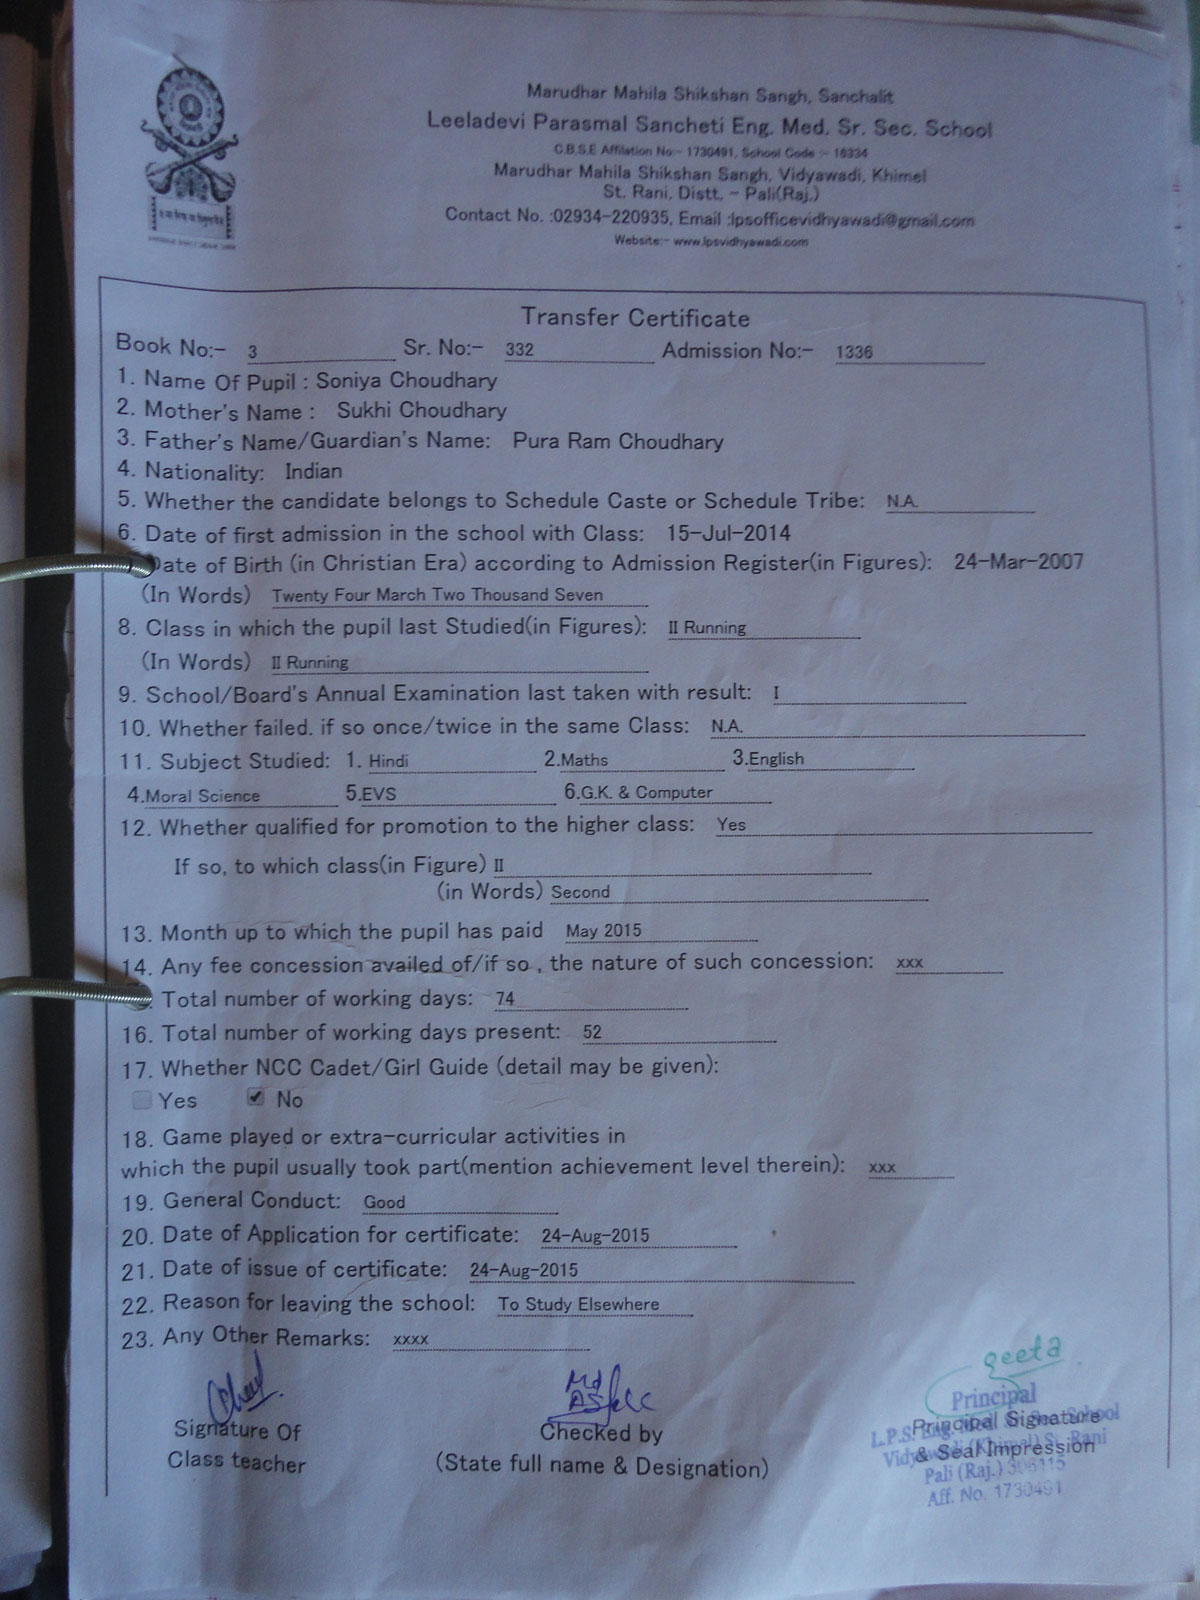 Marudhar Mahila Shikshan Sangh, Sanchalit
Leeladevi Parasmal Sancheti Eng. Med. Sr. Sec. School
C.B.S.E Affilation No:- 1730491, School Code :- 16334
Marudhar Mahila Shikshan Sangh, Vidyawadi, Khimel
St. Rani, Distt. - Pali(Raj.)
Contact No. :02934-220935, Email :lpsofficevidhyawadi@gmail.com
Website:- www.lpsvidhyawadi.com
Transfer Certificate
Book No:- 3 Sr. No:- 332 Admission No:- 1336
1. Name Of Pupil : Soniya Choudhary
2. Mother's Name : Sukhi Choudhary
3. Father's Name/Guardian's Name: Pura Ram Choudhary
4. Nationality: Indian
5. Whether the candidate belongs to Schedule Caste or Schedule Tribe: N.A.
6. Date of first admission in the school with Class: 15-Jul-2014
Date of Birth (in Christian Era) according to Admission Register(in Figures): 24-Mar-2007
(In Words) Twenty Four March Two Thousand Seven
8. Class in which the pupil last Studied(in Figures): II Running
(In Words) II Running
9. School/Board's Annual Examination last taken with result: I
10. Whether failed. if so once/twice in the same Class: N.A.
11. Subject Studied: 1. Hindi 2.Maths 3.English
4.Moral Science 5.EVS 6.G.K. & Computer
12. Whether qualified for promotion to the higher class: Yes
If so, to which class(in Figure) II
(in Words) Second
13. Month up to which the pupil has paid May 2015
14. Any fee concession availed of/if so , the nature of such concession: xxx
Total number of working days: 74
16. Total number of working days present: 52
17. Whether NCC Cadet/Girl Guide (detail may be given):
Yes No
18. Game played or extra-curricular activities in
which the pupil usually took part(mention achievement level therein): xxx
19. General Conduct: Good
20. Date of Application for certificate: 24-Aug-2015
21. Date of issue of certificate: 24-Aug-2015
22. Reason for leaving the school: To Study Elsewhere
23. Any Other Remarks: xxxx
geeta
Principal
Signature Of
Class teacher
Checked by
(State full name & Designation)
Principal Signature
& Seal Impression
L.P.S. Eng. School
Vidyawadi (Khimel) St. Rani
Pali (Raj.) 306115
Aff. No. 1730491